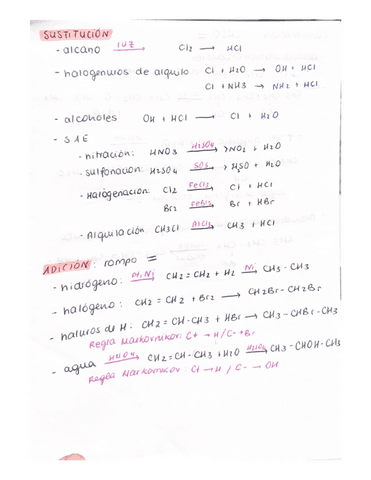 SUSTITUCIÓN
- alcano luz → Cl2 → HCl
- halogenuros de alquilo Cl + H2O → OH + HCl
Cl + NH3 → NH2 + HCl
- alcoholes OH + HCl → Cl + H2O
- SAE
- nitración: HNO3 H2SO4 → NO2 + H2O
- sulfonación: H2SO4 SO3 → HSO + H2O
- Halogenación: Cl2 FeCl3 → Cl + HCl
Br2 FeBr3 → Br + HBr
- Alquilación CH3Cl AlCl3 → CH3 + HCl
ADICIÓN: rompo =
- hidrógeno: Pt, Ni → CH2=CH2 + H2 Ni → CH3-CH3
- halógeno: CH2=CH2 + Br2 → CH2Br-CH2Br
- haluros de H: CH2=CH-CH3 + HBr → CH3-CHBr-CH3
Regla Markovnikov: C+ → H / C- → Br
- agua H2SO4 → CH2=CH-CH3 + H2O H2SO4 → CH3-CHOH-CH3
Regla Markovnikov: Cl → H / C- → OH